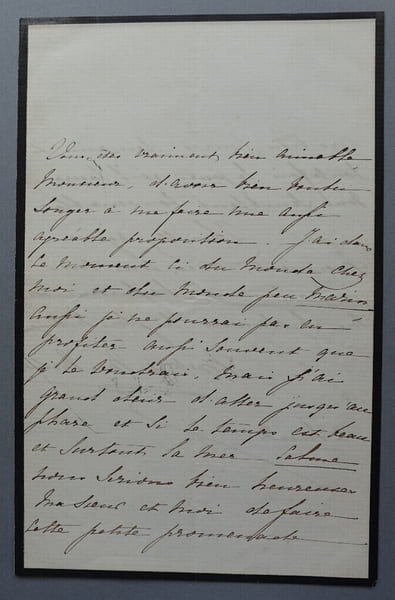 Vous êtes vraiment bien aimable
Monsieur, d'avoir bien voulu
songer à me faire une aussi
agréable proposition. J'ai dans
le moment ci du monde chez
moi et du monde peu marin
aussi je ne pourrai pas en
profiter aussi souvent que
je le voudrais. Mais j'ai
grand désir d'aller jusqu'au
phare et si le temps est beau
et surtout la mer calme
nous serions bien heureuses
ma sœur et moi de faire
cette petite promenade